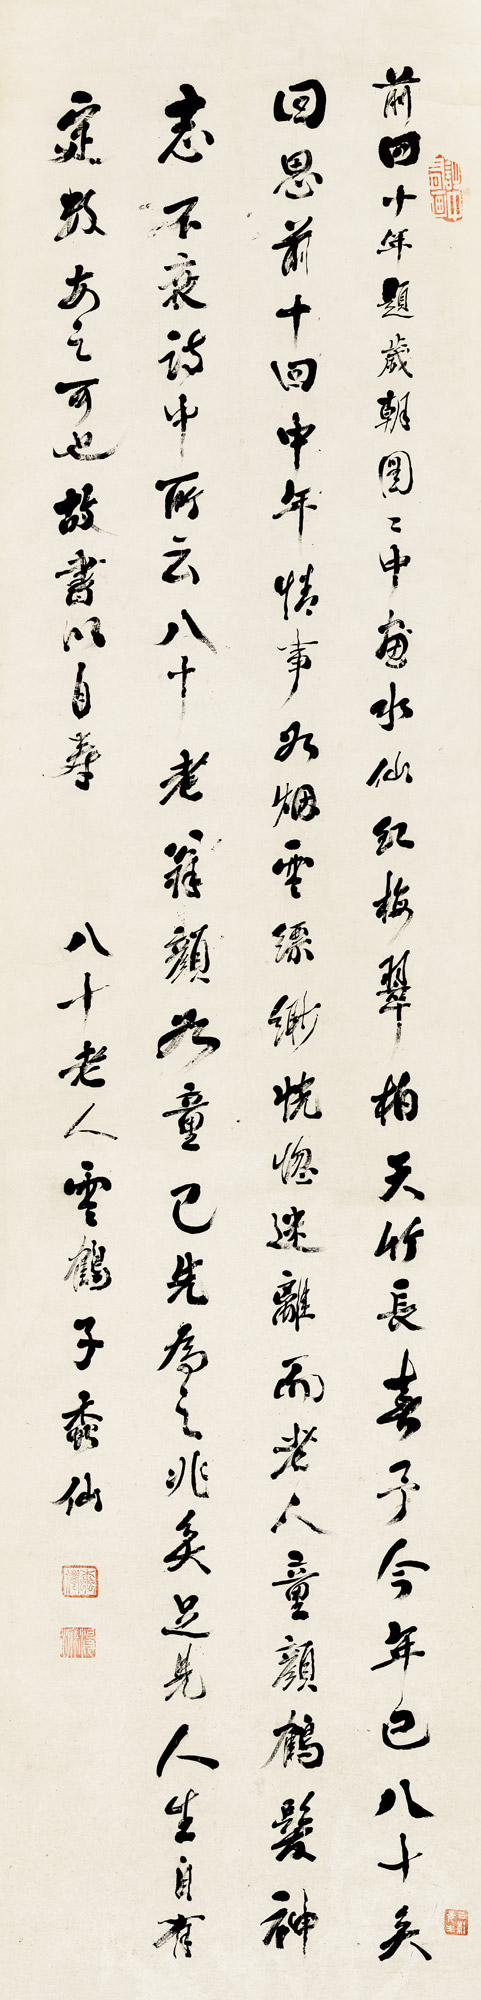 前四十年題歲朝圖〻中畫水仙紅梅翠柏天竹長春予今年已八十矣
回思前十回中年情事如烟雲縹緲恍惚迷離而老人童顏鶴髮神
志不衰詩中所云八十老翁顏如童已先為之兆矣足見人生自有
定數安之可也故書以自壽
八十老人雲鶴子蚕仙